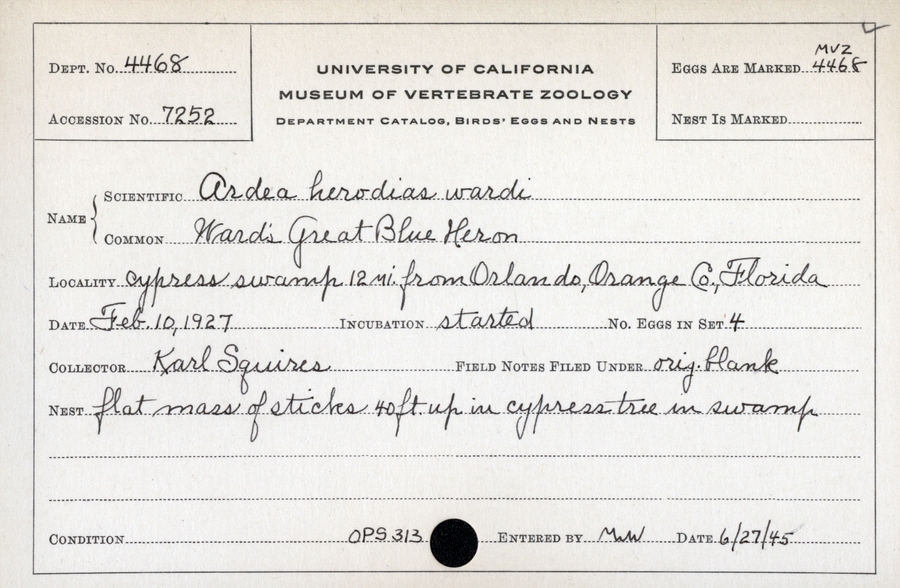 DEPT. NO. 4468
ACCESSION NO. 7252
UNIVERSITY OF CALIFORNIA
MUSEUM OF VERTEBRATE ZOOLOGY
DEPARTMENT CATALOG, BIRDS' EGGS AND NESTS
MVZ
EGGS ARE MARKED 4468
NEST IS MARKED
NAME
SCIENTIFIC Ardea herodias wardi
COMMON Ward's Great Blue Heron
LOCALITY cypress swamp 12 mi. from Orlando, Orange Co., Florida
DATE Feb. 10, 1927 INCUBATION started NO. EGGS IN SET 4
COLLECTOR Karl Squires FIELD NOTES FILED UNDER orig. blank
NEST flat mass of sticks 40 ft. up in cypress tree in swamp
CONDITION OPS 313 ENTERED BY MWW DATE 6/27/45